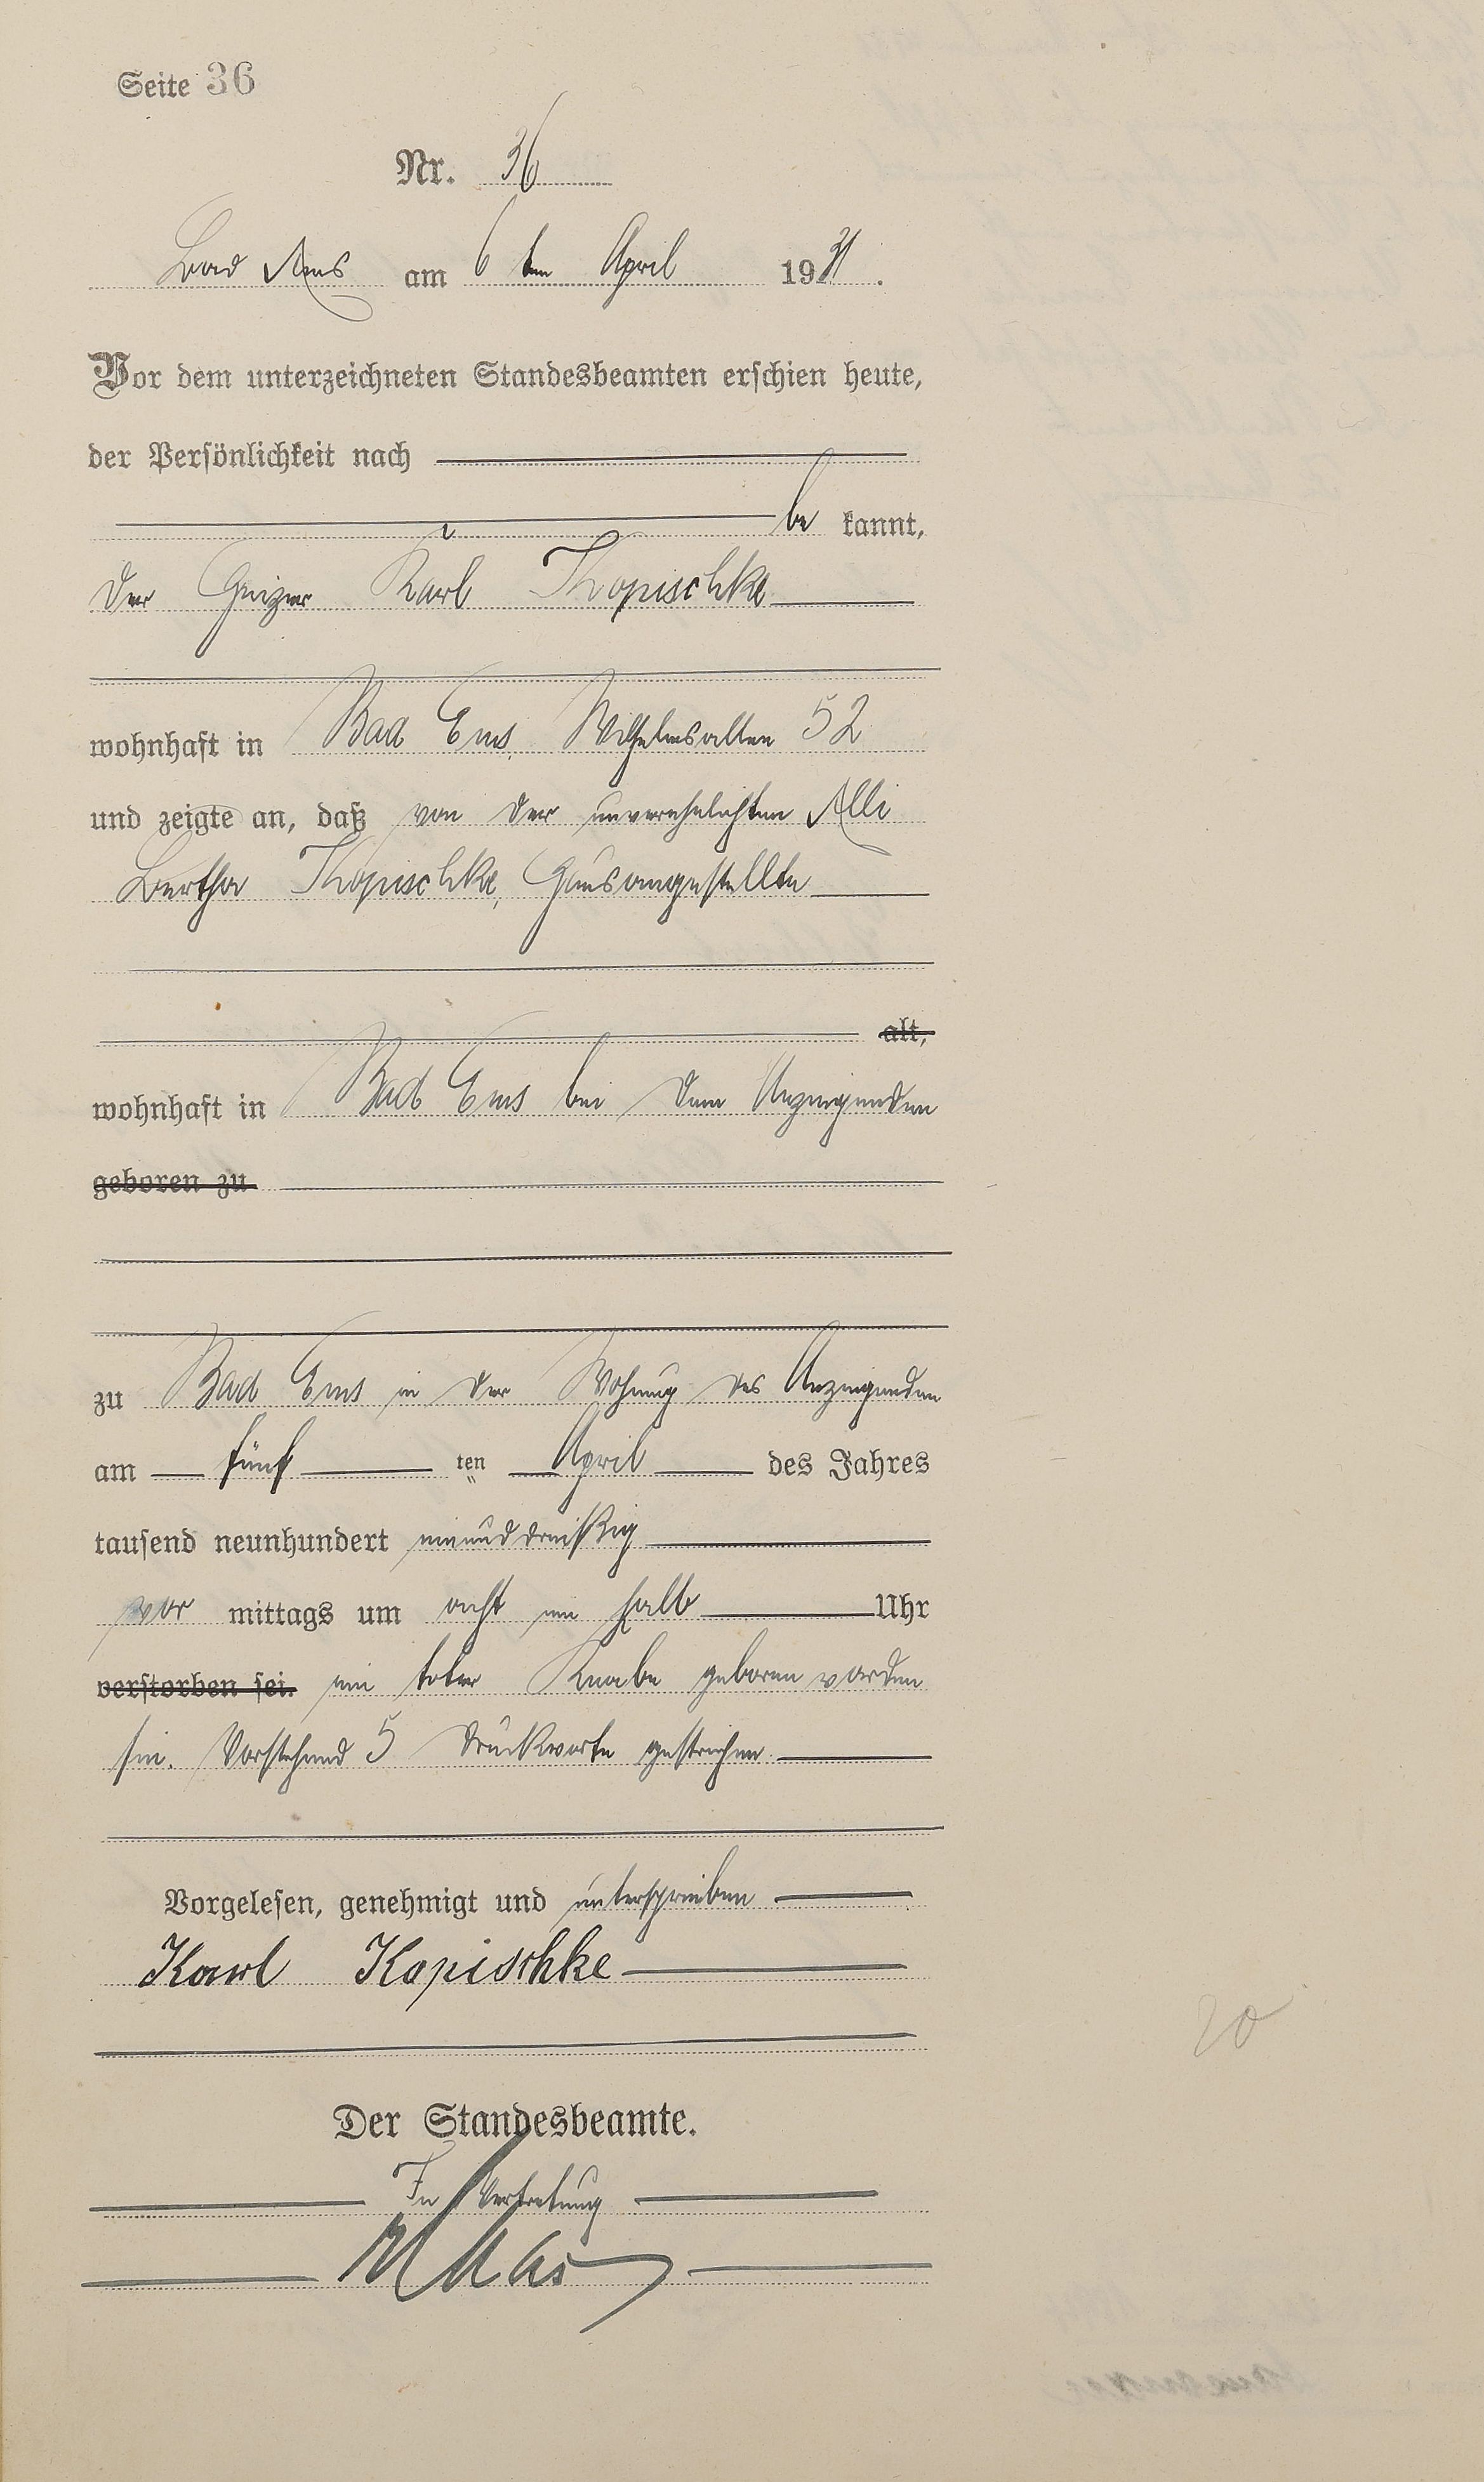 Seite 36
Nr. 36
Bad Ems am 6ten April 1931.
Vor dem unterzeichneten Standesbeamten erschien heute,
der Persönlichkeit nach
be kannt,
der Heizer Karl Kopischke
wohnhaft in Bad Ems, Wilhelmsallee 52
und zeigte an, daß von der unverehelichten Elli
Bertha Kopischke, Hausangestellte
alt,
wohnhaft in Bad Ems bei dem Anzeigenden
geboren zu
zu Bad Ems in der Wohnung des Anzeigenden
am fünf ten April des Jahres
tausend neunhundert einunddreißig
vor mittags um acht ein halb Uhr
verstorben sei. ein toter Knabe geboren worden
sei. Vorstehend 5 Druckworte gestrichen.
Vorgelesen, genehmigt und unterschrieben
Karl Kopischke
20
Der Standesbeamte.
In Vertretung